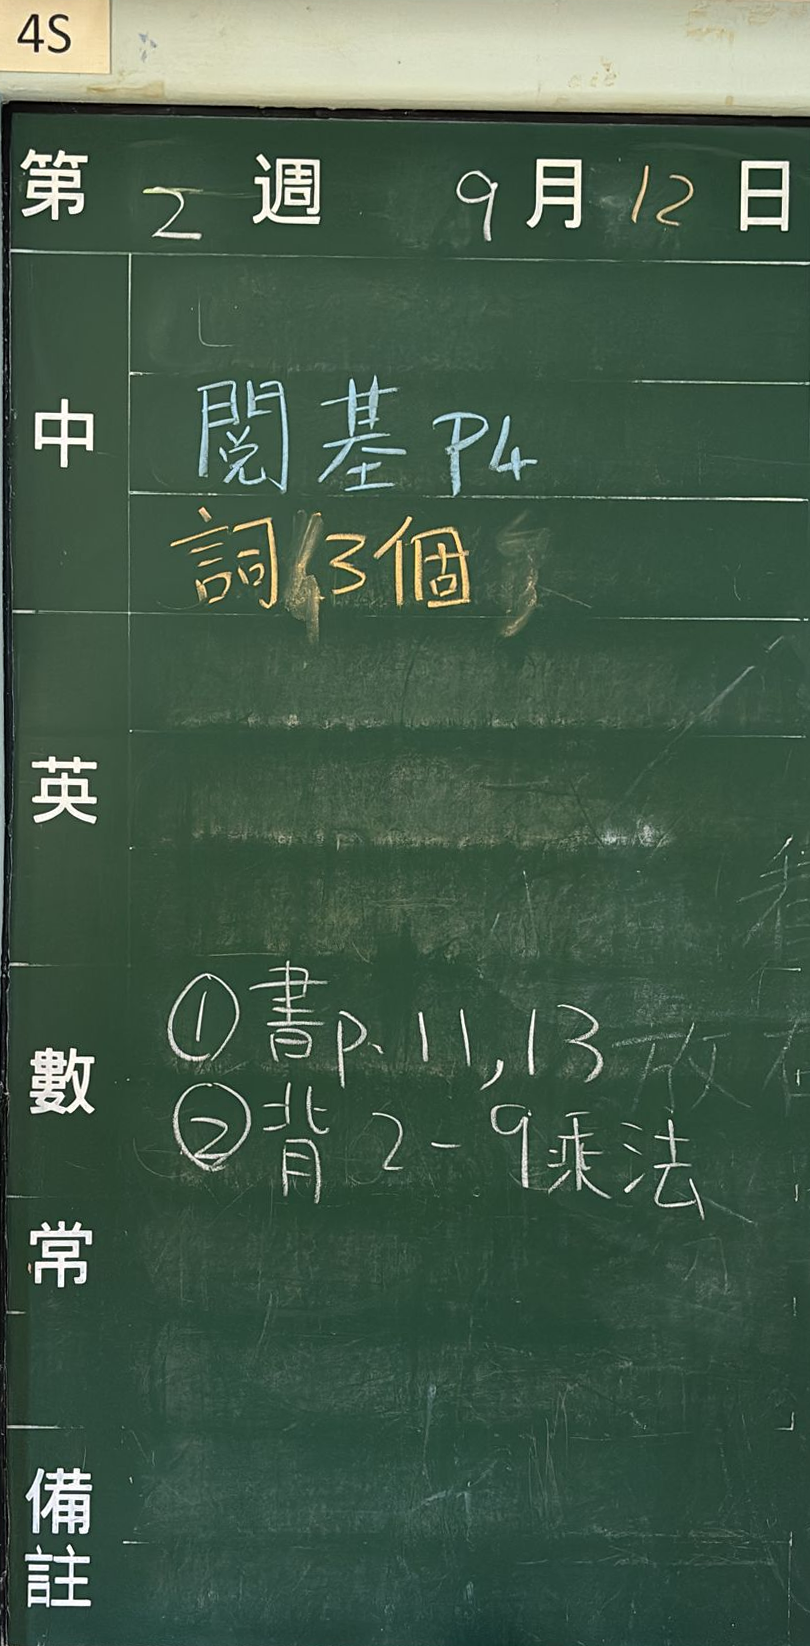 4S
第 2 週 9 月 12 日
中
閱基 P4
詞 3個
英
數
①書p.11,13
②背 2-9乘法
常
備註